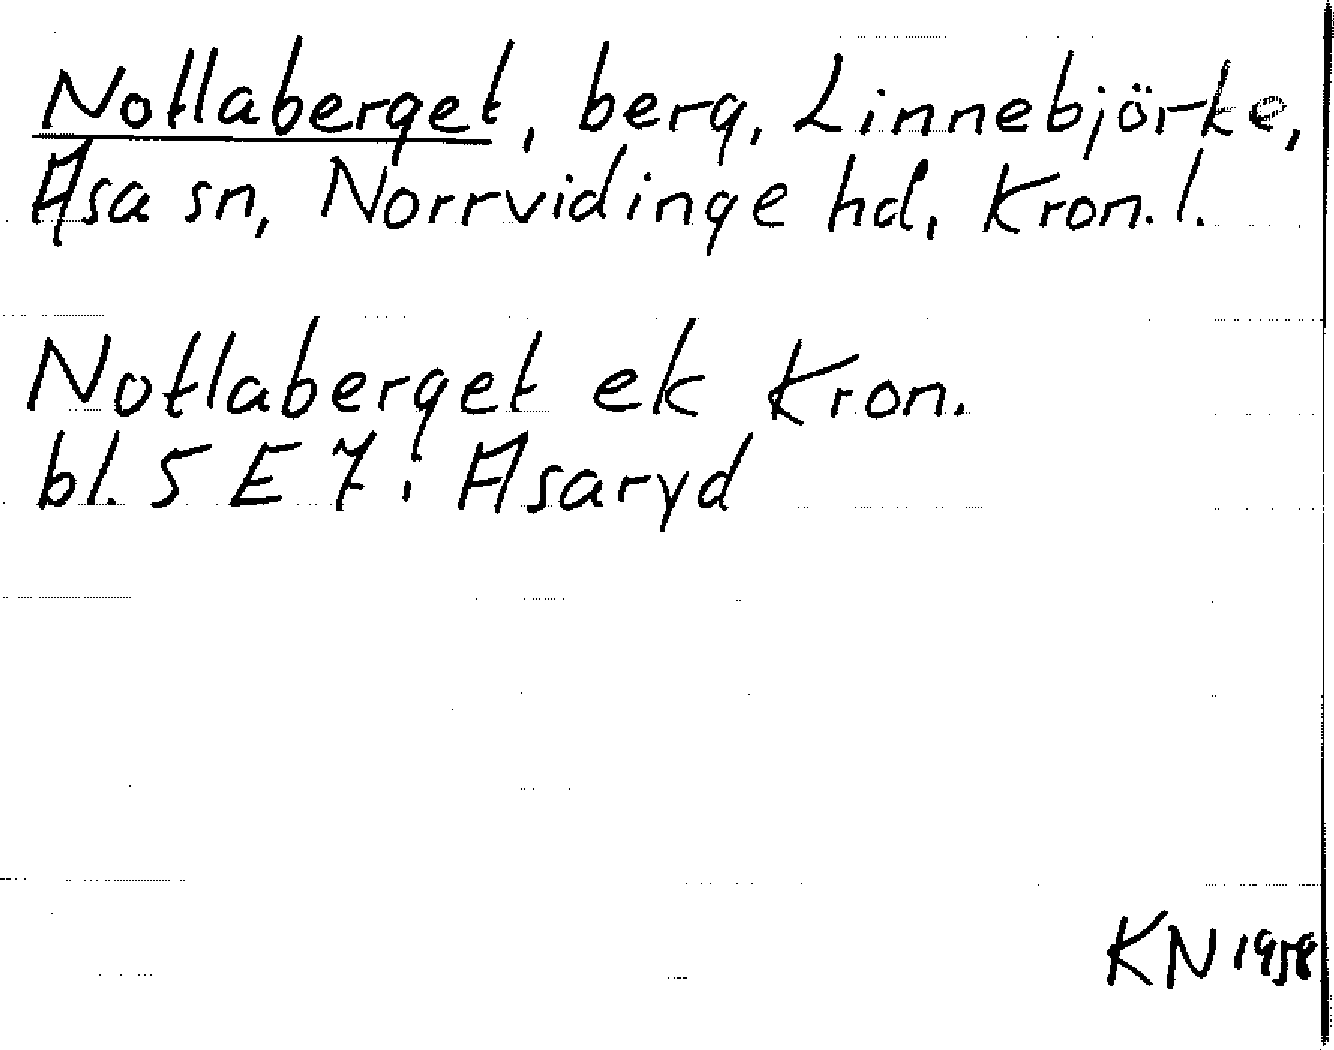 Notlaberget, berg, Linnebjörke,
Asa sn, Norrvidinge hd, Kron. l.
Notlaberget ek Kron.
bl. 5 E 7: Asaryd
KN 1958